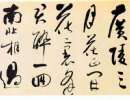 廣陵三
月花正開
花裏逢
君醉一迴
南北相過